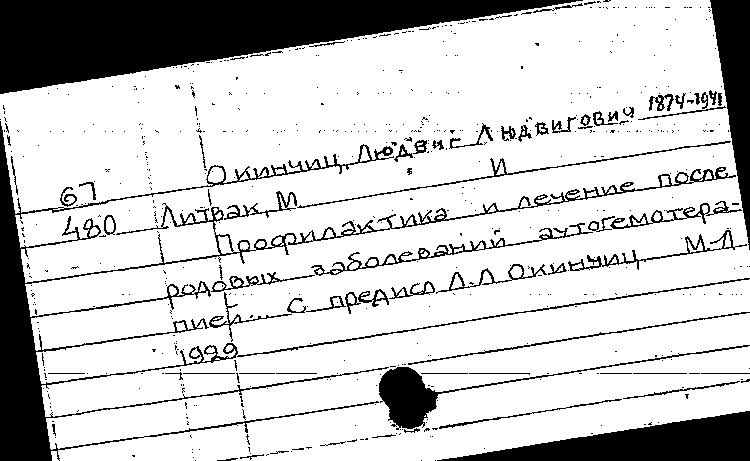 Окинчиц, Людвиг Людвигович 1874-1941
67
480
Литвак, М И
Профилактика и лечение после
родовых заболеваний аутогемотера-
пией... С предисл Л.Л Окинчиц М-Л
1929